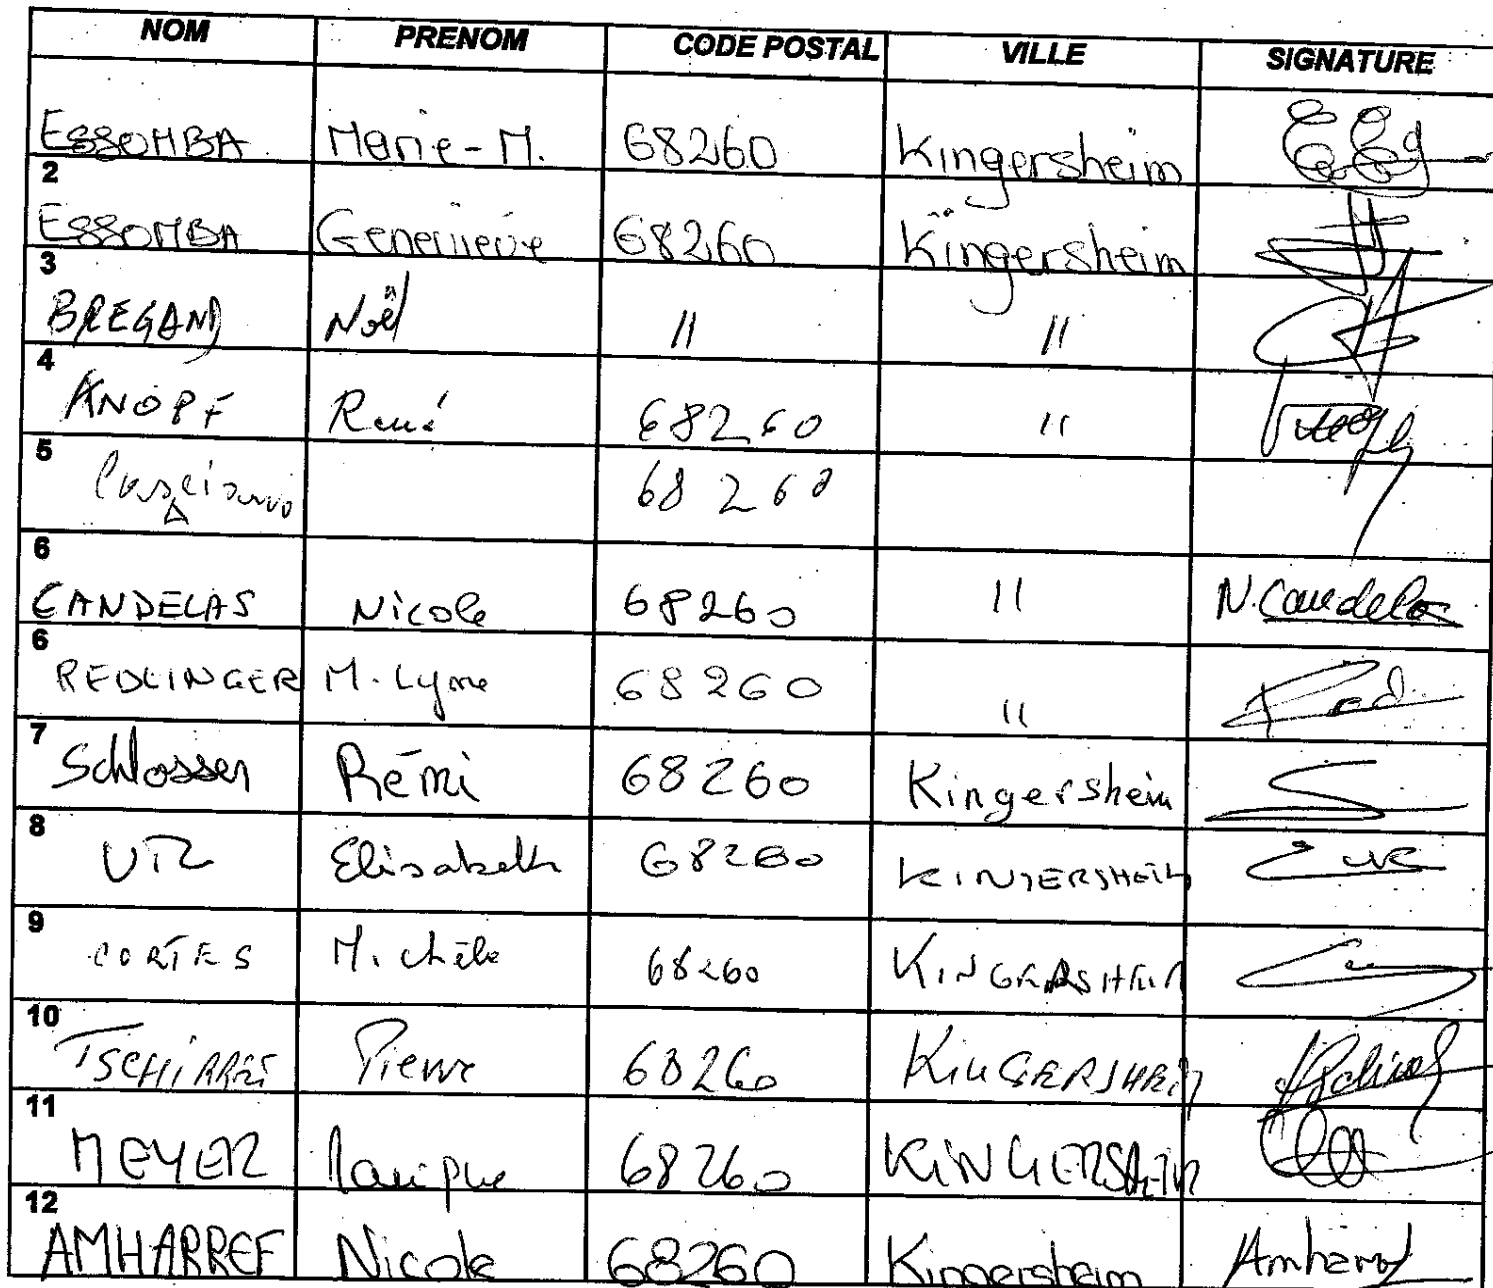 NOM PRENOM CODE POSTAL VILLE SIGNATURE
ESSOMBA Marie-M. 68260 Kingersheim
2
ESSOMBA Geneviève 68260 Kingersheim
3
BREGAND Noël " "
4
KNOPF René 68260 "
5
68260
6
CANDELAS Nicole 68260 " N. Candelas
6
REDLINGER M. Lyne 68260 " Red.
7
Schlosser Rémi 68260 Kingersheim
8
UTZ Elisabeth 68260 KINGERSHEIM
9
CORTES Michèle 68260 KINGERSHEIM
10
Pierre 68260 KINGERSHEIM
11
MEYER 68260 KINGERSHEIM
12
AMHARREF Nicole 68260 Kingersheim